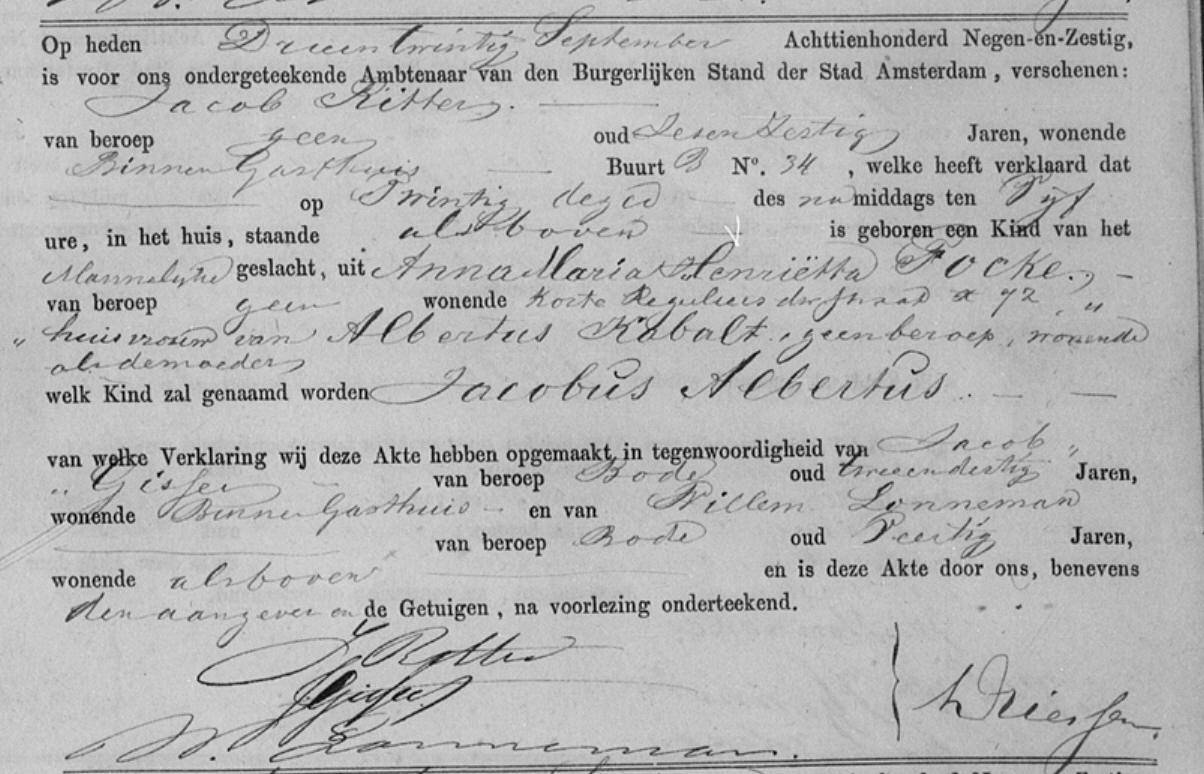 Op heden Drieentwintig September Achttienhonderd Negen-en-Zestig,
is voor ons ondergeteekende Ambtenaar van den Burgerlijken Stand der Stad Amsterdam, verschenen:
Jacob Ritter
van beroep geen oud Zesenzestig Jaren, wonende
Binnen Gasthuis Buurt B No. 34, welke heeft verklaard dat
op Twintig dezer des namiddags ten Vyf
ure, in het huis, staande als boven is geboren een Kind van het
Mannelyke geslacht, uit Anna Maria Henriëtta Focke,
van beroep geen wonende Korte Reguliers dw straat 72
huisvrouw van Albertus Kobalt, geen beroep, wonende
als de moeder
welk Kind zal genaamd worden Jacobus Albertus
van welke Verklaring wij deze Akte hebben opgemaakt in tegenwoordigheid van Jacob
Gisser van beroep Bode oud Jaren,
wonende Binnen Gasthuis en van Willem Lonneman
van beroep Bode oud Veertig Jaren,
wonende als boven en is deze Akte door ons, benevens
den aangever en de Getuigen, na voorlezing onderteekend.
J Ritter
J Gisser
W. Lonneman.